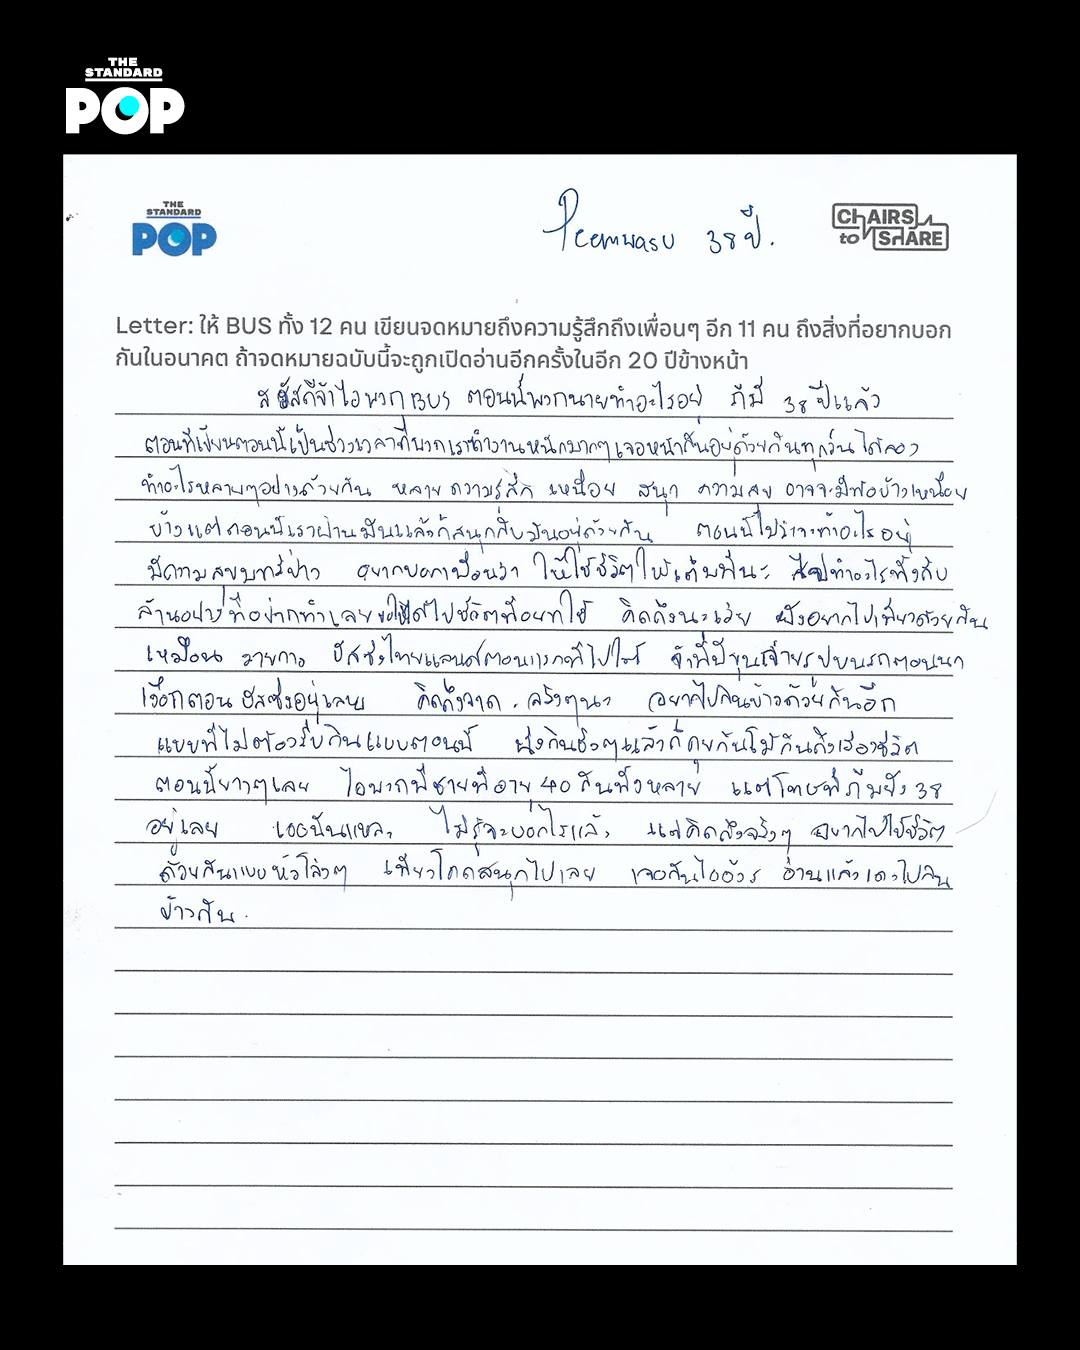 THE
STANDARD
POP
THE
STANDARD
POP
Peemwasu 38 ปี.
CHAIRS
to SHARE
Letter: ให้ BUS ทั้ง 12 คน เขียนจดหมายถึงความรู้สึกถึงเพื่อนๆ อีก 11 คน ถึงสิ่งที่อยากบอก
กันในอนาคต ถ้าจดหมายฉบับนี้จะถูกเปิดอ่านอีกครั้งในอีก 20 ปีข้างหน้า
สวัสดีจ้าไอพวก BUS ตอนนี้พวกนายทำอะไรอยู่ ภีมี 38 ปีแล้ว
ตอนที่เขียนตอนนี้เป็นช่วงเวลาที่พวกเราทำงานหนักมากๆ เจอหน้ากันอยู่ด้วยกันทุกวัน ได้ลอง
ทำอะไรหลายๆอย่างด้วยกัน หลายความรู้สึก เหนื่อย สนุก ความสุข อาจจะมีท้อบ้างเหนื่อย
บ้างแต่ตอนนี้เราผ่านมันแล้วก็สนุกกับมันอยู่ด้วยกัน ตอนนี้ไม่รู้จะทำอะไรอยู่
มีความสุขมากรึป่าว อยากบอกเพื่อนว่า ให้ใช้ชีวิตให้เต็มที่นะ ทำอะไรทั้งสิบ
ล้านอย่างที่อยากทำเลย ได้ไปใช้ชีวิตที่อยากใช้ คิดถึงนะเว้ย ยังอยากไปเที่ยวด้วยกัน
เหมือน รายการ บัสซิ่งไทยแลนด์ตอนแรกที่ไปใต้ จำที่ปีขุนเจ้ายรูปบนรถตอนนา
เงือกตอน บัสซิ่งอยู่เลย คิดถึงจาด. จริงๆนะ อยากไปกินข้าวด้วยกันอีก
แบบที่ไม่ต้องรีบกินแบบตอนนี้ นั่งกินชิวๆแล้วก็คุยกันโม้กันถึงเรื่องชีวิต
ตอนนี้ยาวๆเลย ไอพวกพี่ชายที่อายุ 40 กันทั้งหลาย แต่โทษทีภีมยัง 38
อยู่เลย เออนั่นแหละ ไม่รู้จะบอกไรแล้ว แต่คิดถึงจริงๆ อยากไปใช้ชีวิต
ด้วยกันแบบหัวโล่งๆ เที่ยวโคตสนุกไปเลย เจอกันไอ้อ้วร อ่านแล้วเดวไปกิน
ข้าวกัน.